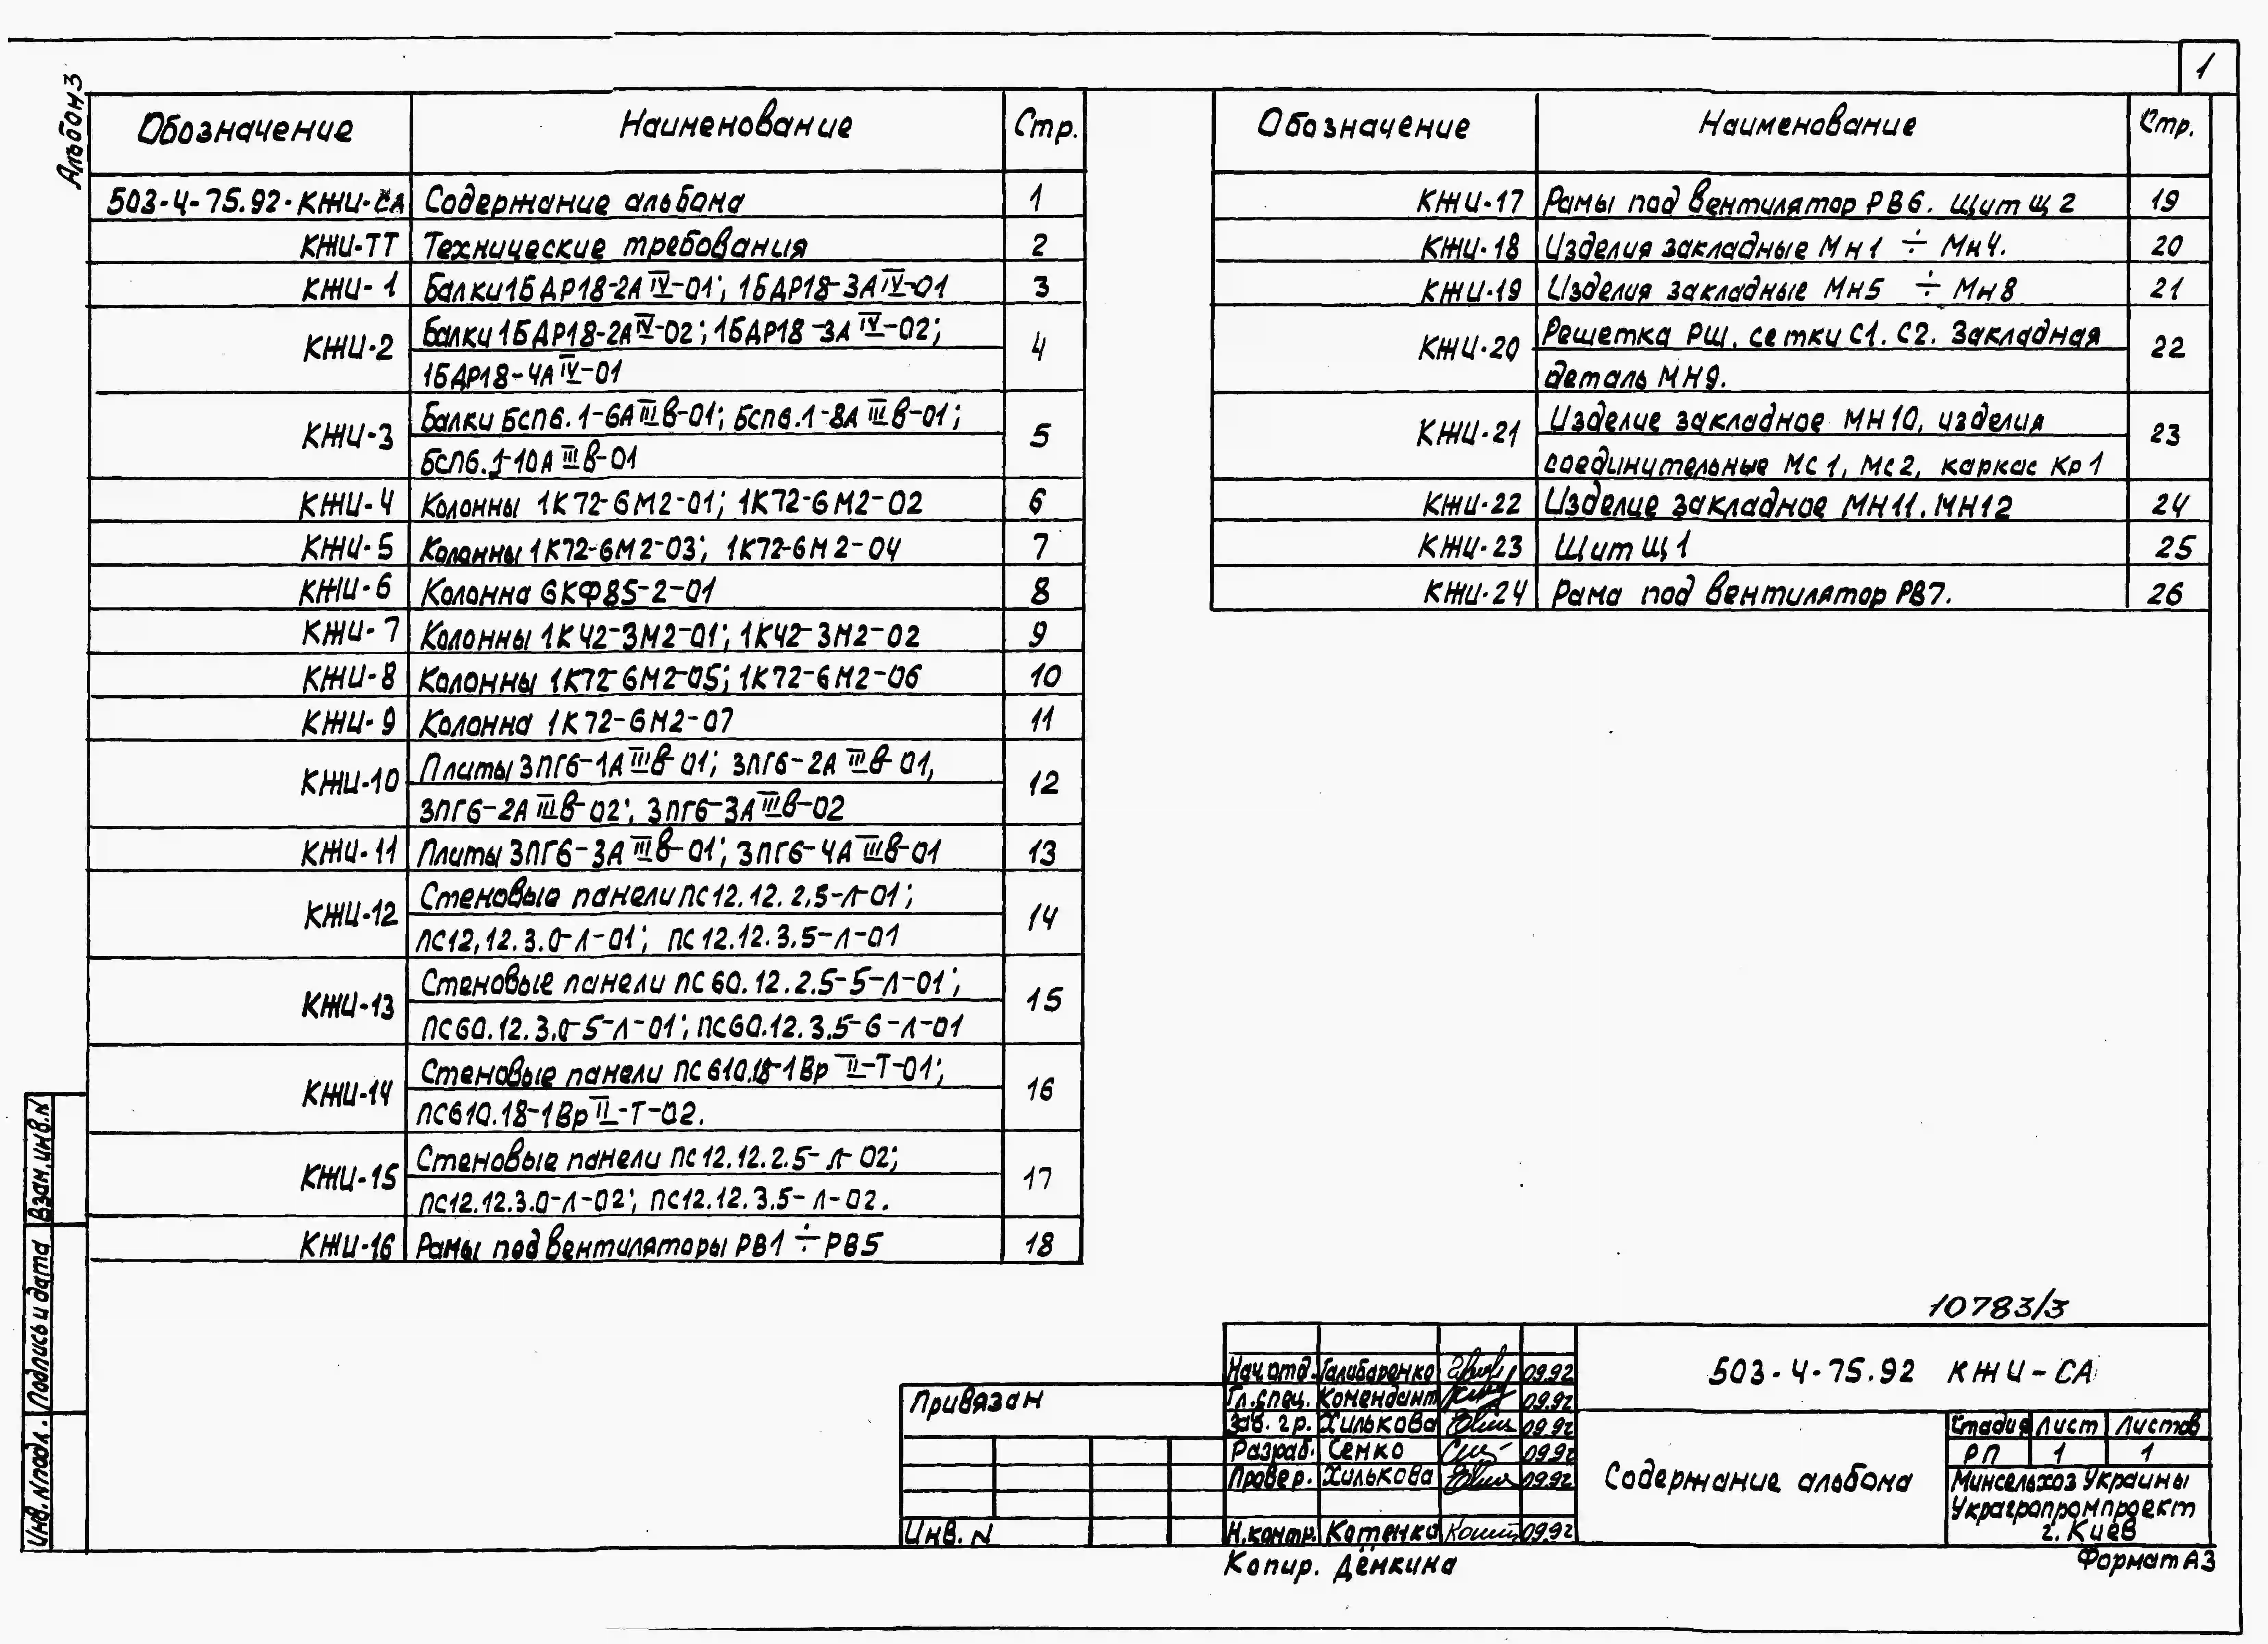 1
Альбом 3
Обозначение Наименование Стр.
503-4-75.92-КЖИ-СА Содержание альбома 1
КЖИ-ТТ Технические требования 2
КЖИ-1 Балки 1БДР18-2АIV-01; 1БДР18-3АIV-01 3
КЖИ-2 Балки 1БДР18-2АIV-02; 1БДР18-3АIV-02; 4
1БДР18-4АIV-01
КЖИ-3 Балки БСП6.1-6АIIIв-01; БСП6.1-8АIIIв-01; 5
БСП6.1-10АIIIв-01
КЖИ-4 Колонны 1К72-6М2-01; 1К72-6М2-02 6
КЖИ-5 Колонны 1К72-6М2-03; 1К72-6М2-04 7
КЖИ-6 Колонна 6КФ85-2-01 8
КЖИ-7 Колонны 1К42-3М2-01; 1К42-3М2-02 9
КЖИ-8 Колонны 1К72-6М2-05; 1К72-6М2-06 10
КЖИ-9 Колонна 1К72-6М2-07 11
КЖИ-10 Плиты 3ПГ6-1АIIIв-01; 3ПГ6-2АIIIв-01, 12
3ПГ6-2АIIIв-02; 3ПГ6-3АIIIв-02
КЖИ-11 Плиты 3ПГ6-3АIIIв-01; 3ПГ6-4АIIIв-01 13
КЖИ-12 Стеновые панели ПС12.12.2,5-л-01; 14
ПС12,12.3.0-л-01; ПС12.12.3.5-л-01
КЖИ-13 Стеновые панели ПС60.12.2.5-5-л-01; 15
ПС60.12.3.0-5-л-01; ПС60.12.3.5-6-л-01
КЖИ-14 Стеновые панели ПС610.18-1ВрII-Т-01; 16
ПС610.18-1ВрII-Т-02.
КЖИ-15 Стеновые панели ПС12.12.2.5-л-02; 17
ПС12.12.3.0-л-02; ПС12.12.3.5-л-02.
КЖИ-16 Рамы под вентиляторы РВ1 ÷ РВ5 18
Обозначение Наименование Стр.
КЖИ-17 Рамы под вентилятор РВ6. Щит Щ2 19
КЖИ-18 Изделия закладные Мн1 ÷ Мн4. 20
КЖИ-19 Изделия закладные Мн5 ÷ Мн8 21
КЖИ-20 Решетка РШ, сетки С1. С2. Закладная 22
деталь МН9.
КЖИ-21 Изделие закладное МН10, изделия 23
соединительные МС1, МС2, каркас Кр1
КЖИ-22 Изделие закладное МН11. МН12 24
КЖИ-23 Щит Щ1 25
КЖИ-24 Рама под вентилятор РВ7. 26
Взам.инв.N
Подпись и дата
Инв.Nподл.
10783/3
Привязан
Инв. N
Нач.отд. Галибаренко 09.92
Гл.спец. Комендант 09.92
Зав. гр. Хилькова 09.92
Разраб. Семко 09.92
Провер. Хилькова 09.92
Н.контр. Котенко 09.92
503-4-75.92 КЖИ-СА
Содержание альбома
Стадия Лист Листов
РП 1 1
Минсельхоз Украины
Украгропромпроект
г. Киев
Копир. Дёмкина
Формат А3